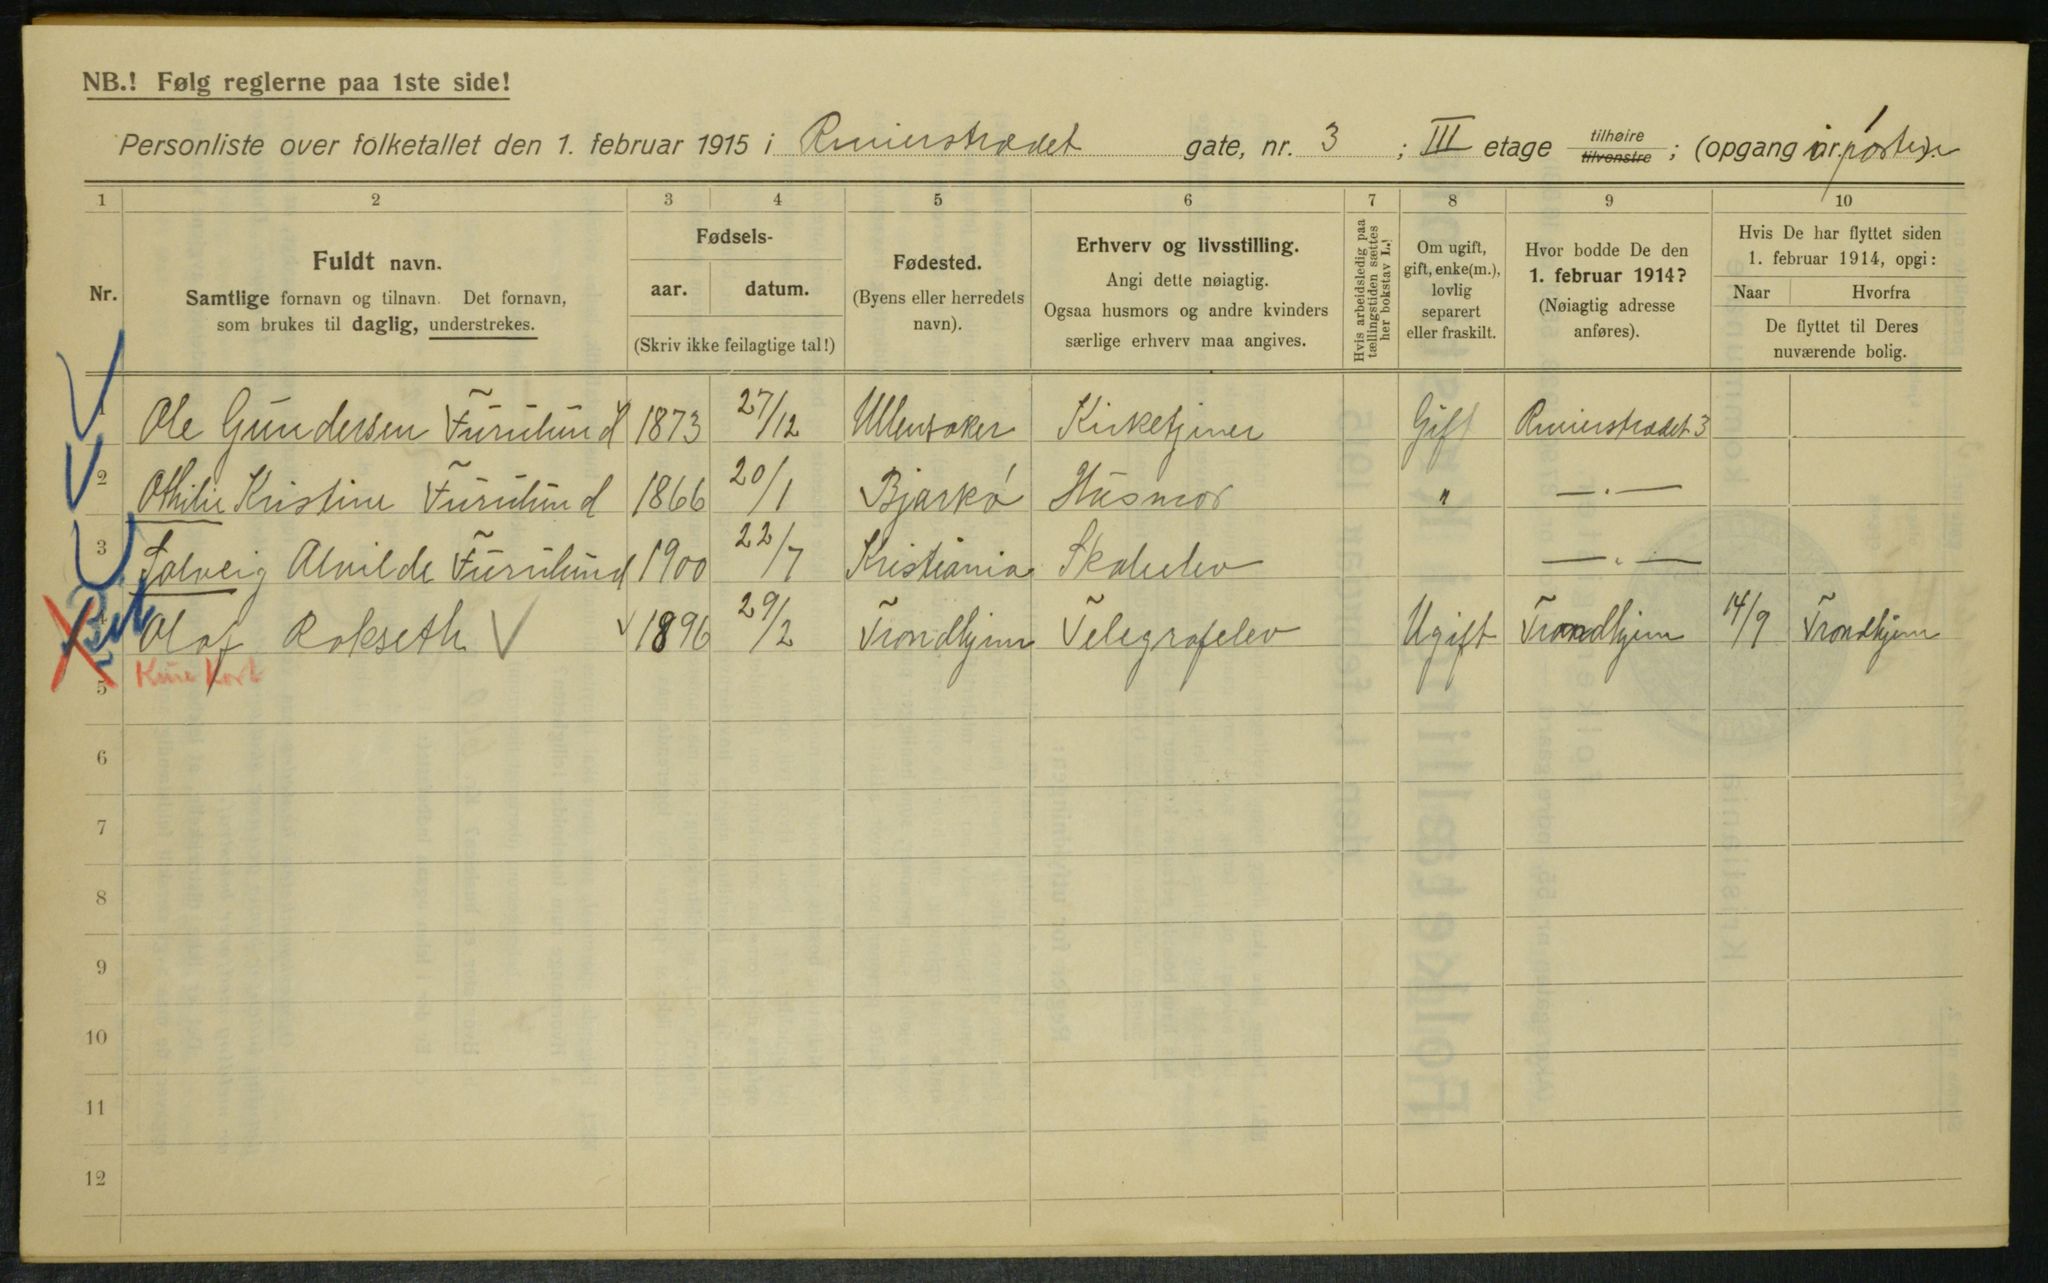 NB.! Følg reglerne paa 1ste side!
Personliste over folketallet den 1. februar 1915 i Ruuerstrædet gate, nr. 3 ; III etage tilhøire tilvenstre ; (opgang nr. i porten).
1 2 3 4 5 6 7 8 9 10
Nr.
Fuldt navn.
Samtlige fornavn og tilnavn. Det fornavn,
som brukes til daglig, understrekes.
Fødsels-
aar. datum.
(Skriv ikke feilagtige tal!)
Fødested.
(Byens eller herredets
navn).
Erhverv og livsstilling.
Angi dette nøiagtig.
Ogsaa husmors og andre kvinders
særlige erhverv maa angives.
Hvis arbeidsledig paa
tællingstiden sættes
her bokstav L.!
Om ugift,
gift, enke(m.),
lovlig
separert
eller fraskilt.
Hvor bodde De den
1. februar 1914?
(Nøiagtig adresse
anføres).
Hvis De har flyttet siden
1. februar 1914, opgi:
Naar Hvorfra
De flyttet til Deres
nuværende bolig.
1 Ole Gundersen Furulund 1873 27/12 Ullensaker Kirketjener Gift Ruuerstrædet 3
2 Othilie Kristine Furulund 1866 20/1 Bjarkö Husmor " — . —
3 Solveig Alvilde Furulund 1900 22/7 Kristiania Skoleelev — . —
4 Olaf Rokseth 1896 29/2 Trondhjem Telegrafelev Ugift Trondhjem 14/9 Trondhjem
5
6
7
8
9
10
11
12